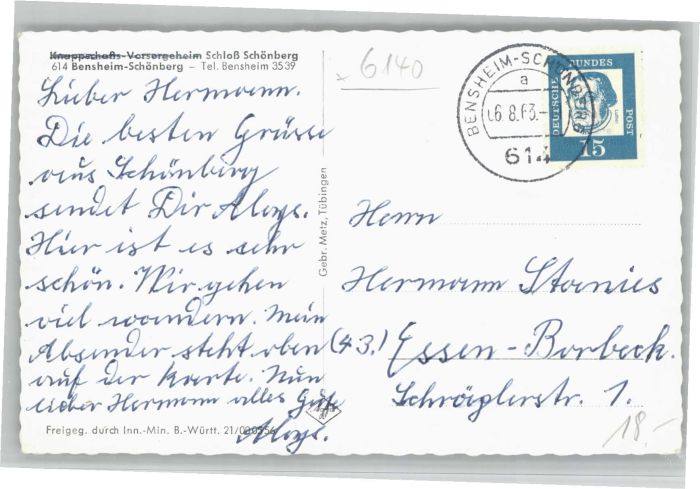 Knappschafts-Vorsorgeheim Schloß Schönberg
614 Bensheim-Schönberg – Tel. Bensheim 3539
Lieber Hermann.
Die besten Grüsse
aus Schönberg
sendet Dir Aloys.
Hier ist es sehr
schön. Wir gehen
viel wandern. Mein
Absender steht oben
auf der Karte. Nun
lieber Hermann alles Gute
Aloys.
Freigeg. durch Inn.-Min. B.-Württ. 21/020556
Gebr. Metz, Tübingen
6140
BENSHEIM-SCHÖNBERG
a
06.8.63.-
614
DEUTSCHE BUNDESPOST
15
Herrn
Hermann Stanies
(43.) Essen-Borbeck.
Schräglerstr. 1.
18.-